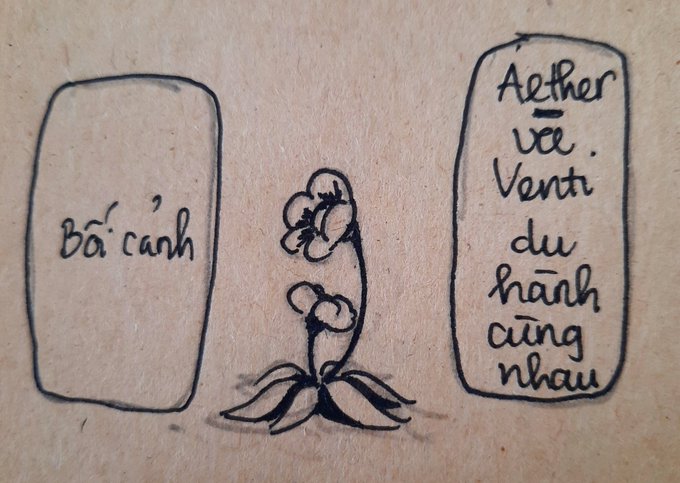 Bối cảnh
Aether
và
Venti
du
hành
cùng
nhau